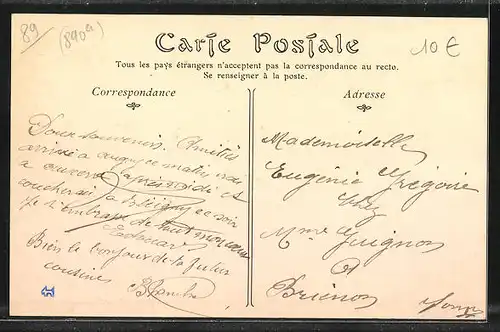 89
(890a)
10 €
Carte Postale
Tous les pays étrangers n'acceptent pas la correspondance au recto.
Se renseigner à la poste.
Correspondance
Doux souvenirs. Amitiés
arrivé a ce matin
a Auxerre
coucherai a ce soir
Je t'embrasse de tout mon cœur
Bien le bonjour de ta future
cousines Blanche
Adresse
Mademoiselle
Eugénie Grégoire
chez
Mme Guignon
à
Brienon Yonne